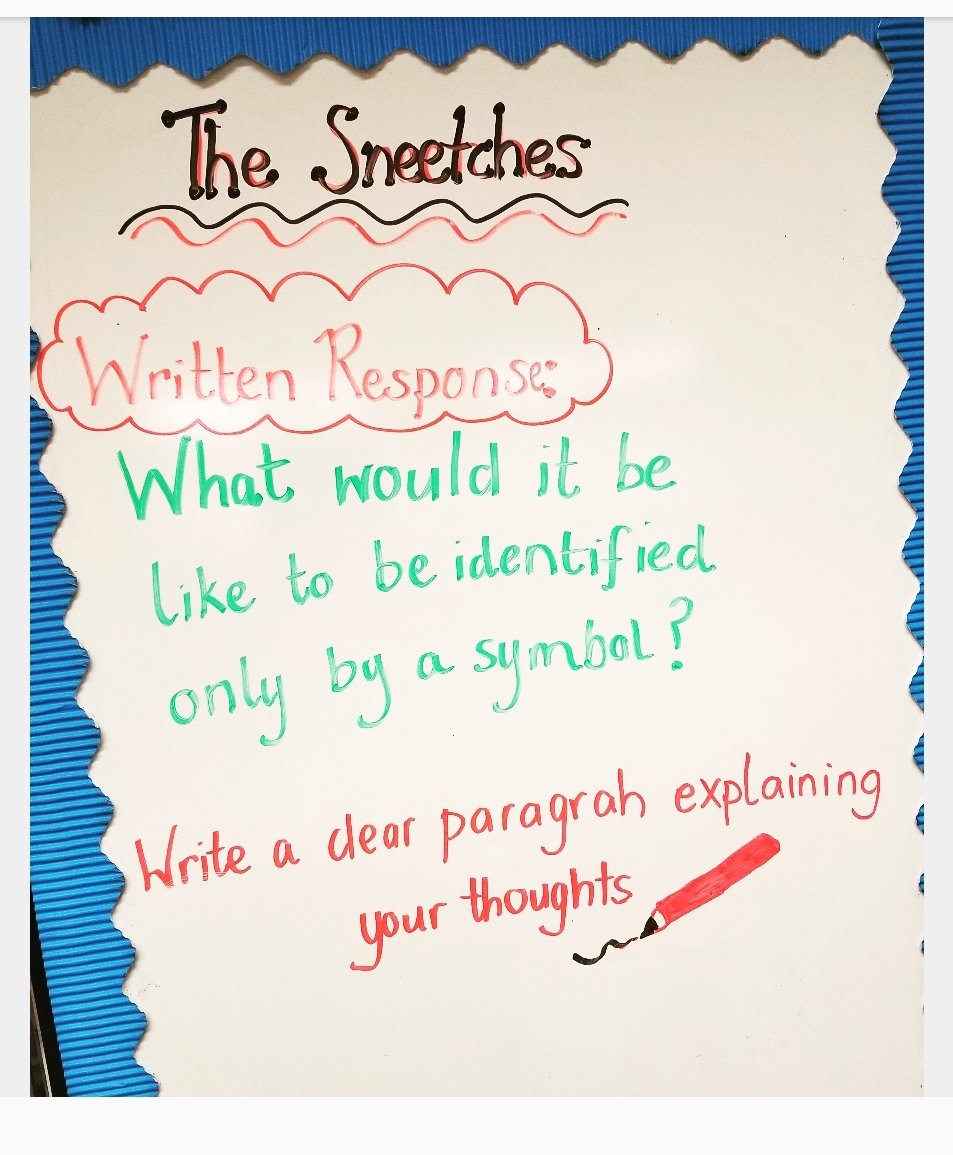 The Sneetches
Written Response:
What would it be
like to be identified
only by a symbol?
Write a clear paragrah explaining
your thoughts